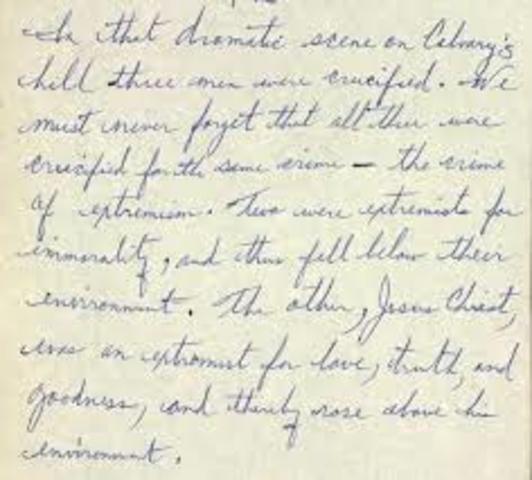 In that dramatic scene on Calvary's
hill three men were crucified. We
must never forget that all three were
crucified for the same crime — the crime
of extremism. Two were extremists for
immorality, and thus fell below their
environment. The other, Jesus Christ,
was an extremist for love, truth, and
goodness, and thereby rose above his
environment.